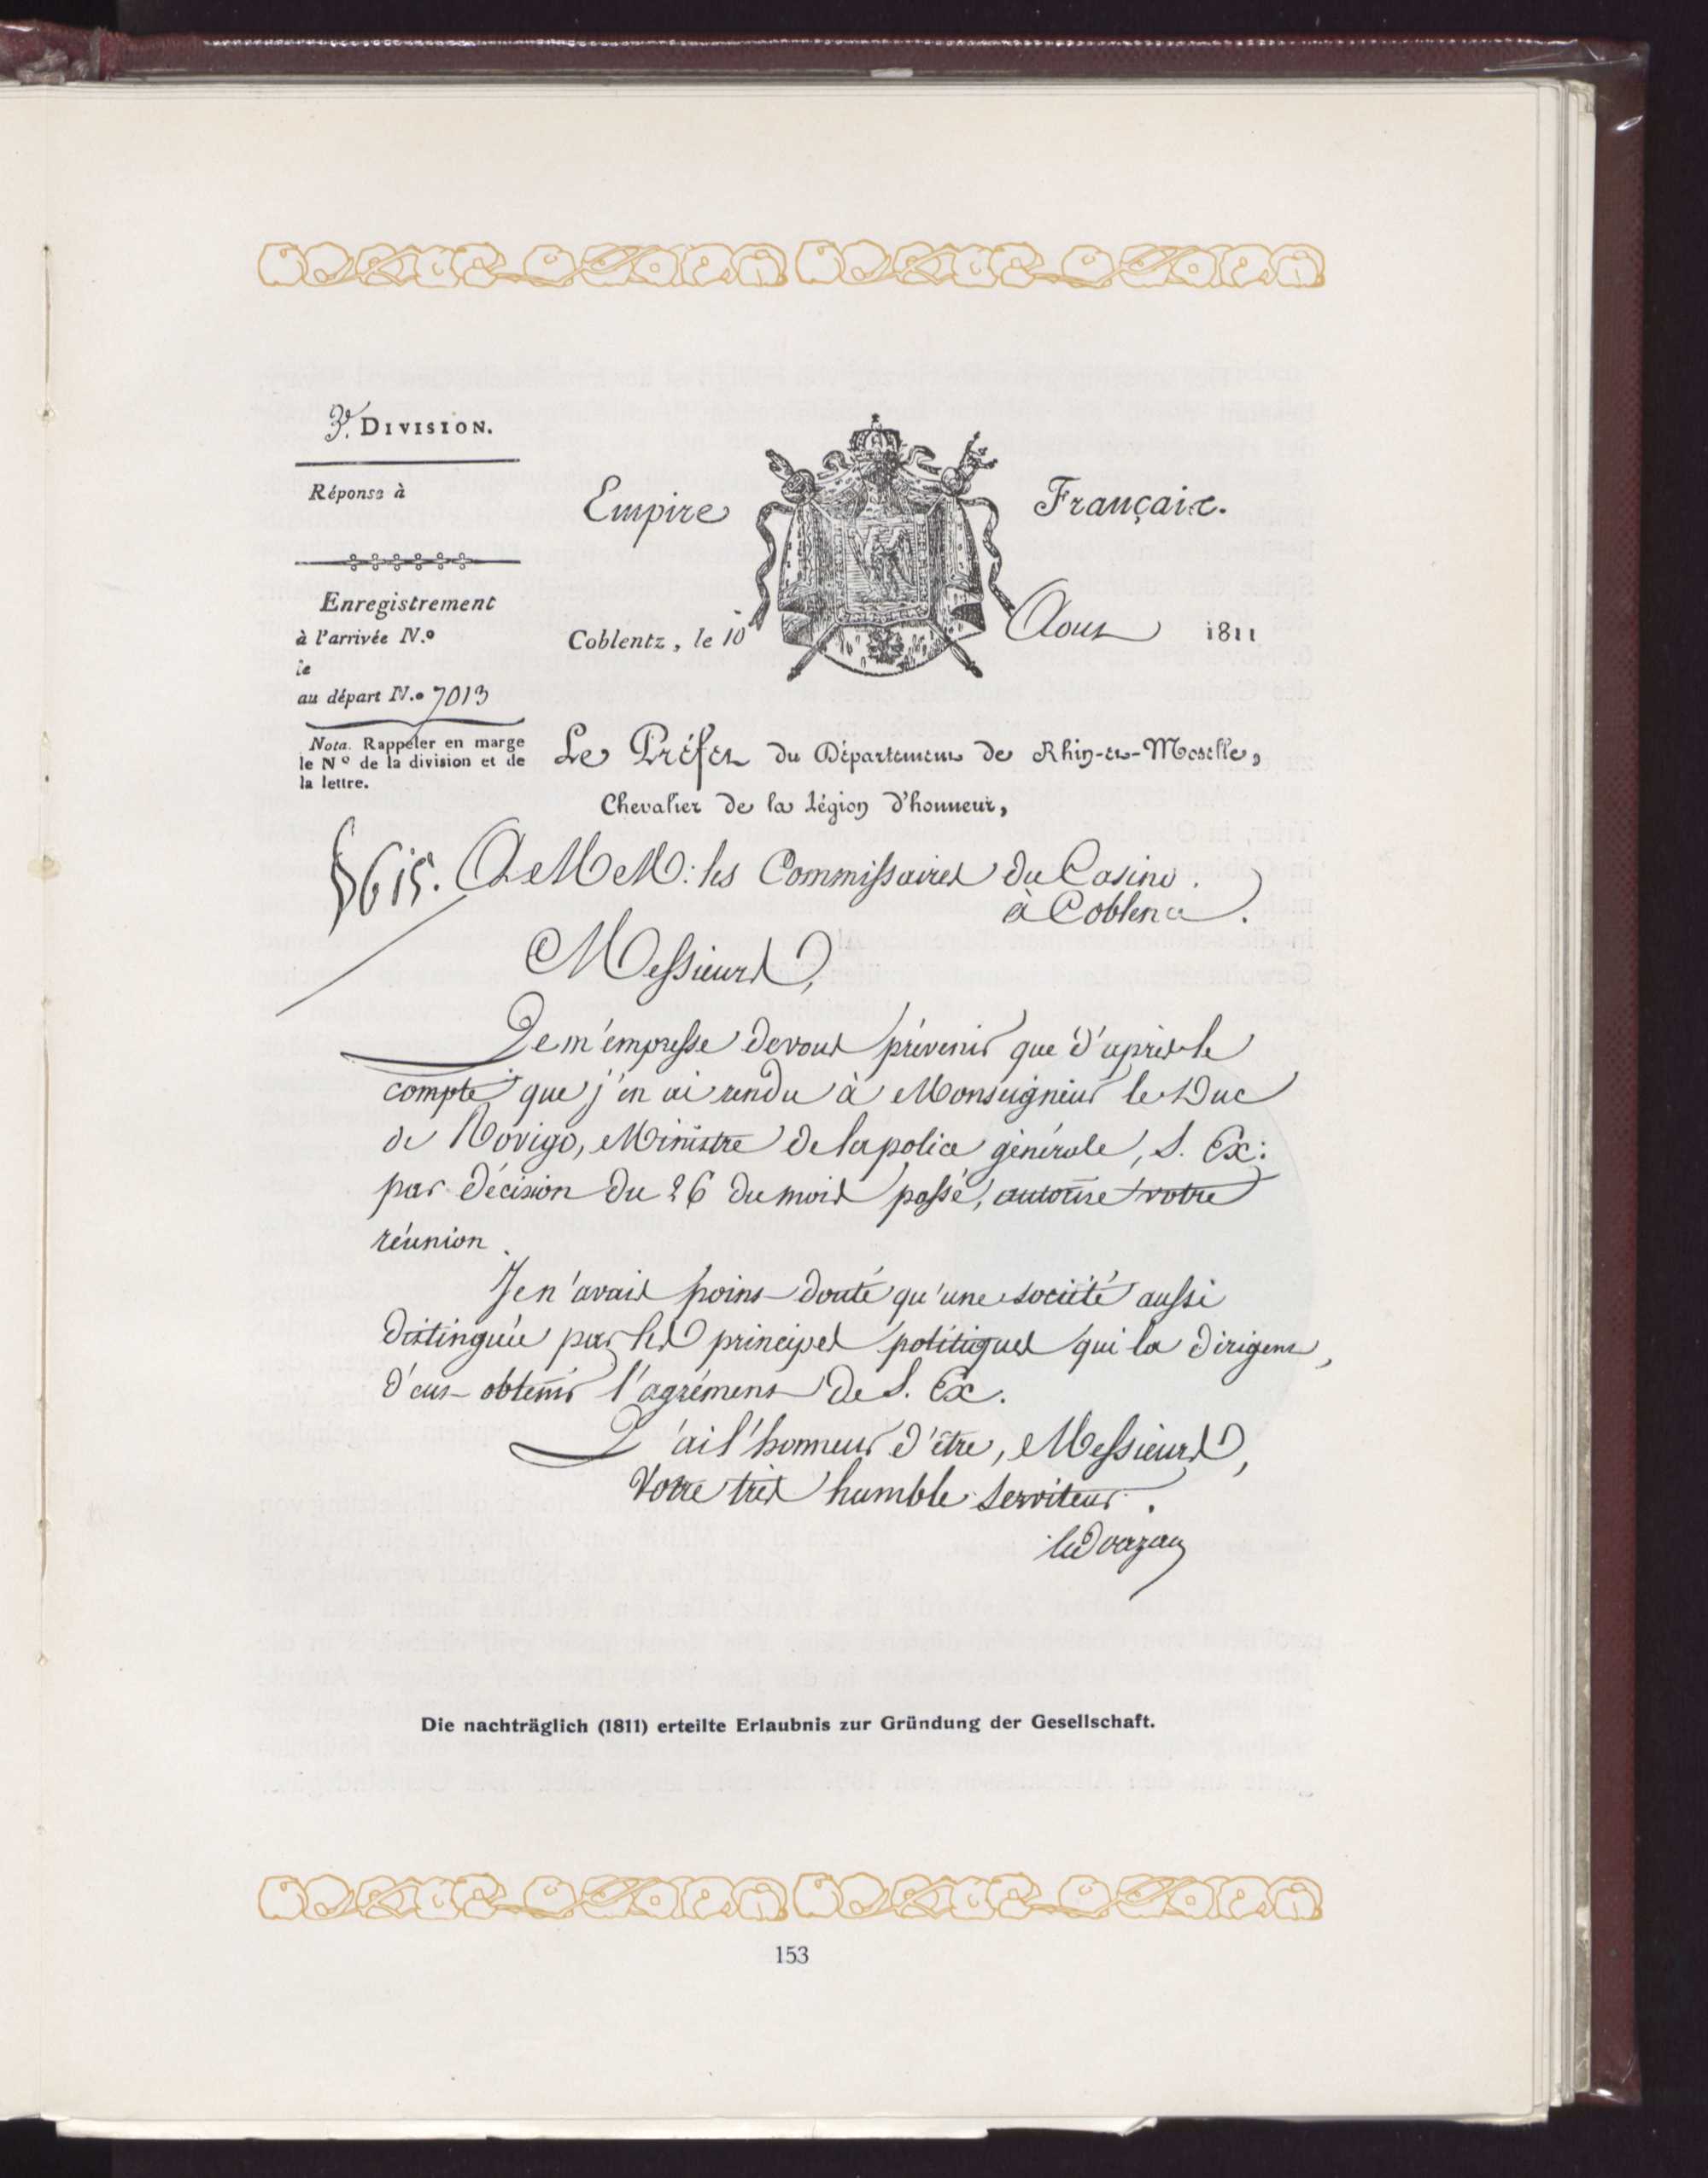 3.e DIVISION.
Réponse à
Enregistrement
à l'arrivée N.o
le
au départ N.o 7013
Nota. Rappeler en marge
le No de la division et de
la lettre.
Empire Français.
Coblentz, le 10 Aout 1811
Le Préfet du Département de Rhin-et-Moselle,
Chevalier de la Légion d'honneur,
A MM: les Commissaires du Casino.
à Coblence.
Messieurs,
Je m'empresse de vous prévenir que d'après le
compte que j'en ai rendu à Monseigneur le Duc
de Rovigo, Ministre de la police générale, S. Ex:
par décision du 26 du mois passé, autorise votre
réunion.
Je n'avais point douté qu'une société aussi
distinguée par les principes politiques qui la dirigent,
d'eut obtenir l'agrément de S. Ex.
J'ai l'honneur d'être, Messieurs,
Votre très humble serviteur.
Die nachträglich (1811) erteilte Erlaubnis zur Gründung der Gesellschaft.
153